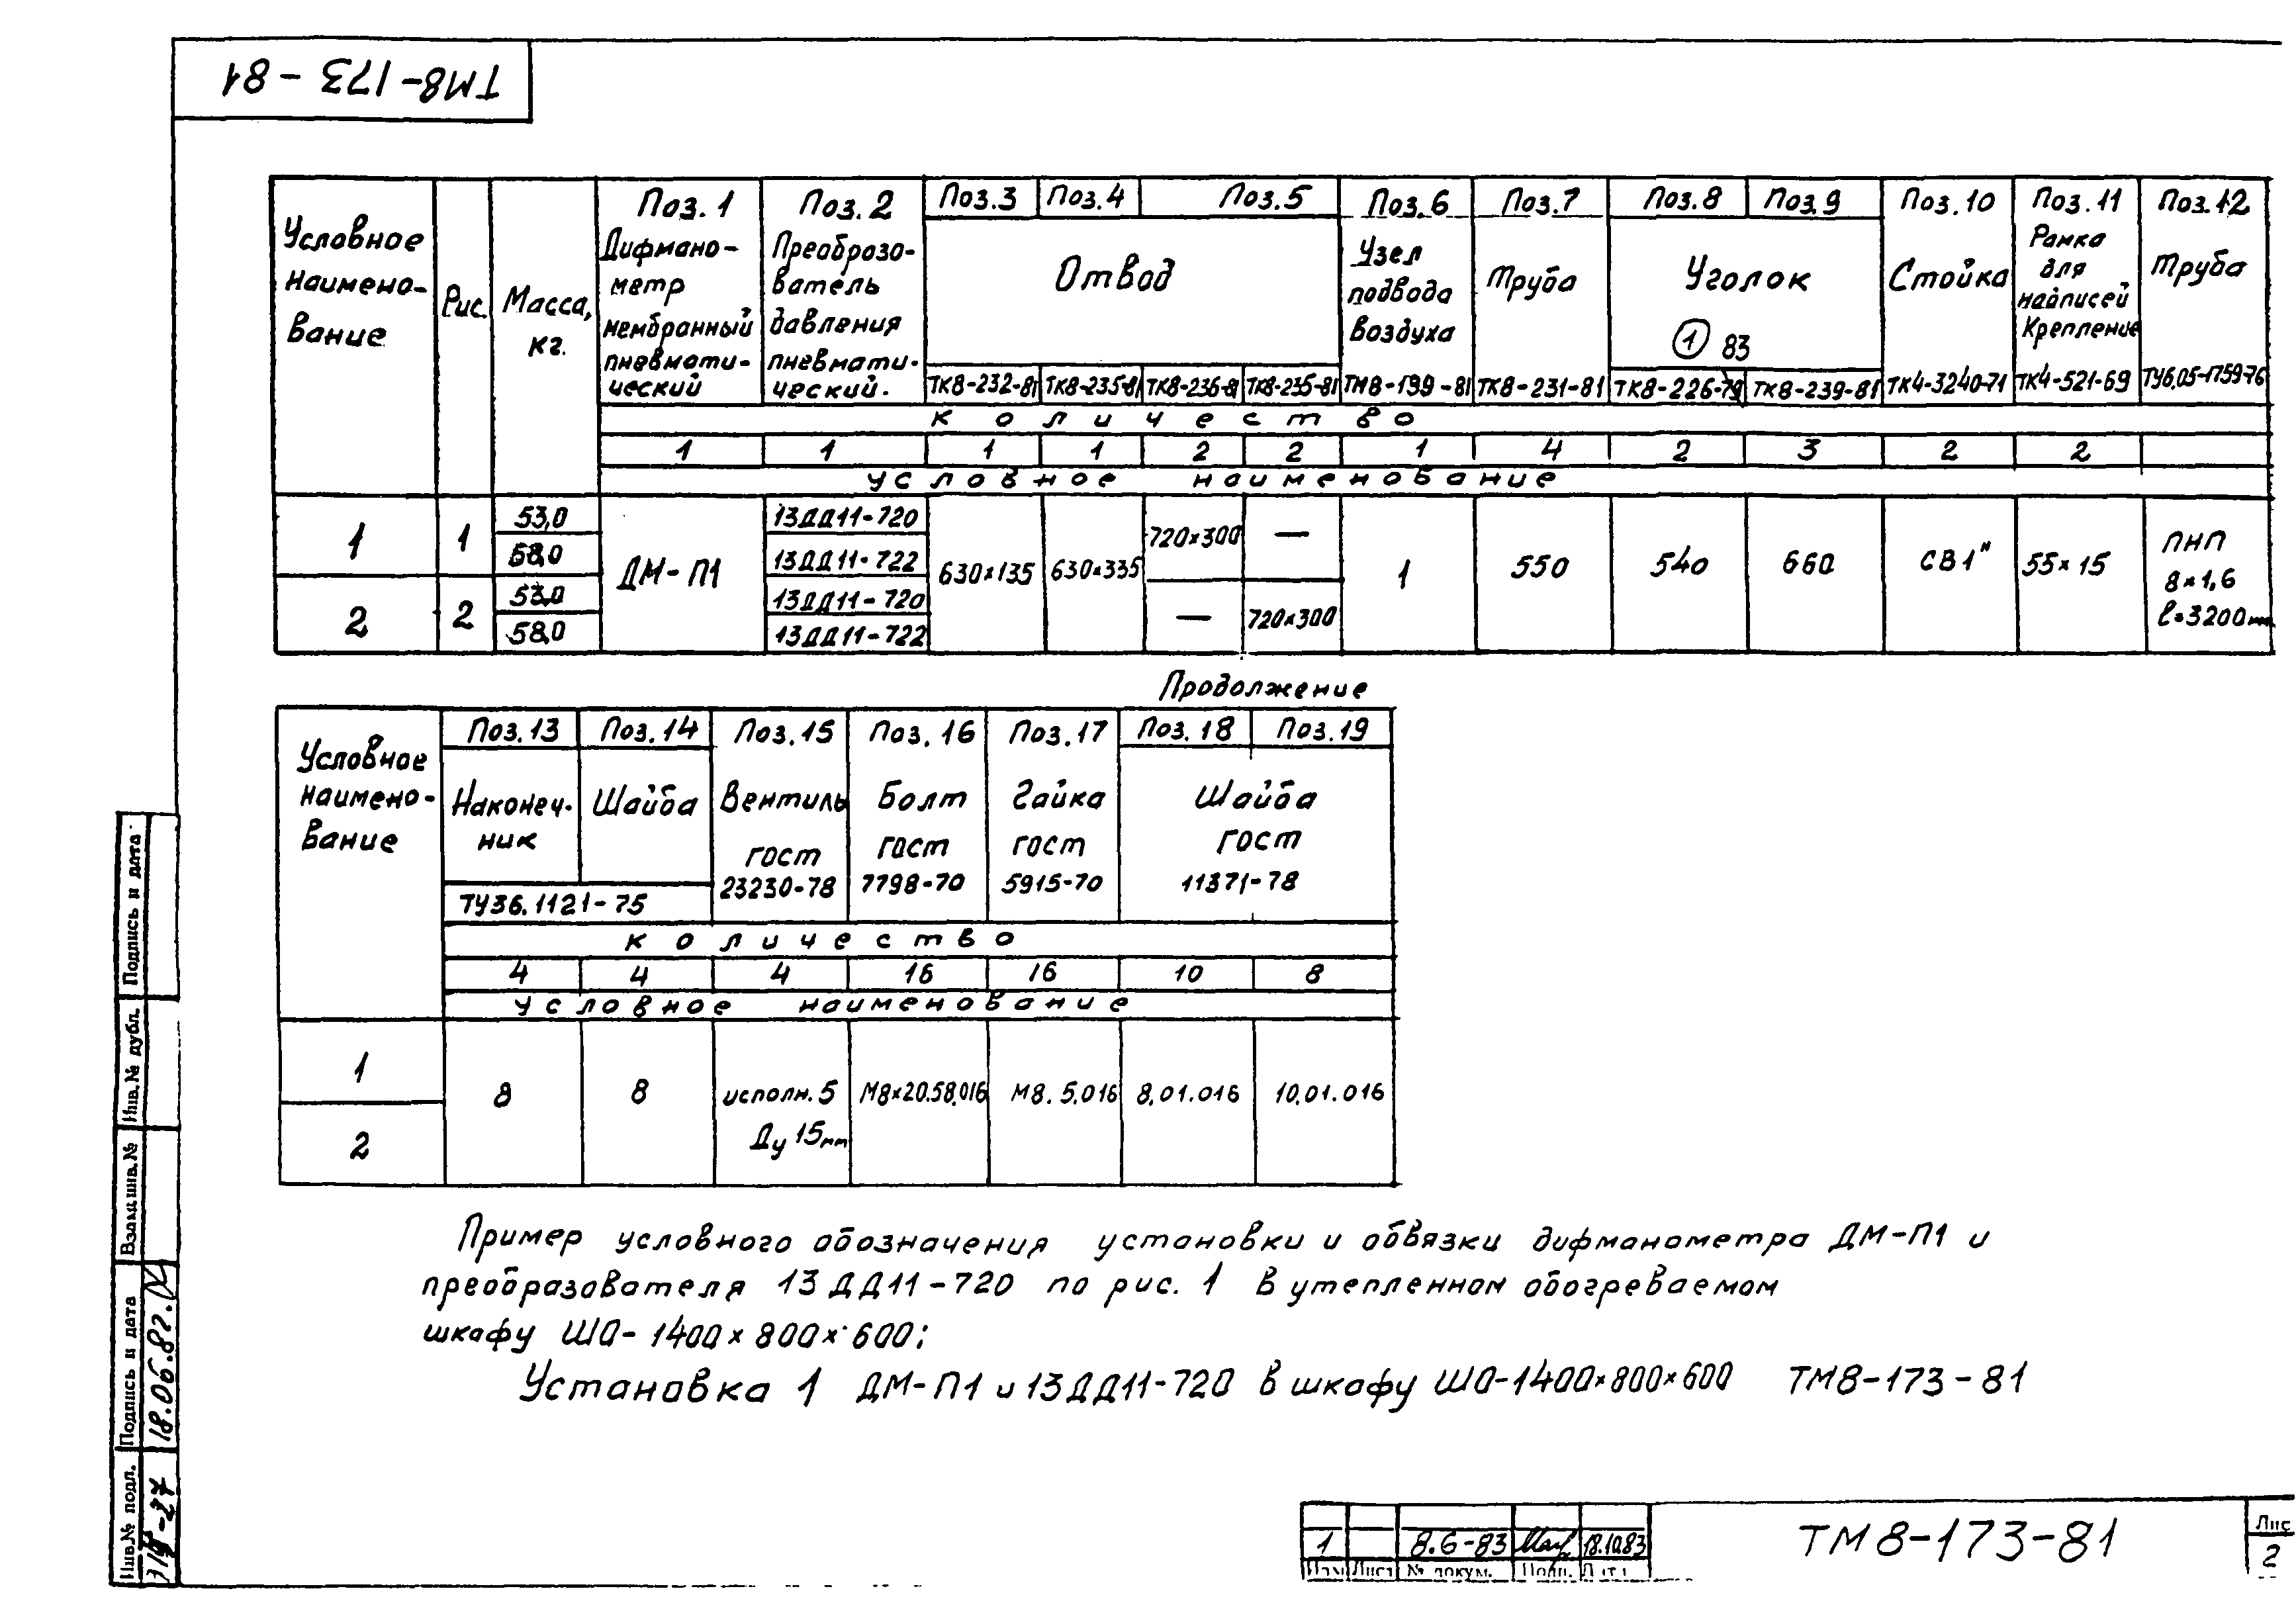 ТМ8-173-81
Условное наимено-вание
Рис.
Масса, кг.
Поз. 1
Дифмано-
метр
мембранный
пневмати-
ческий
Поз. 2
Преобразо-
ватель
давления
пневмати-
ческий.
Поз.3 Поз.4 Поз.5
Отвод
ТК8-232-81 ТК8-235-81 ТК8-236-81 ТК8-235-81
Поз.6
Узел
подвода
воздуха
ТМ8-199-81
Поз.7
Труба
ТК8-231-81
Поз.8 Поз.9
Уголок
1 83
ТК8-226-79 ТК8-239-81
Поз.10
Стойка
ТК4-3240-71
Поз.11
Рамка
для
надписей
Крепление
ТК4-521-69
Поз.12
Труба
ТУ6.05-1759-76
количество
1 1 1 1 2 2 1 4 2 3 2 2
условное наименование
1 1 53,0 13ДД11-720
58,0 13ДД11-722
2 2 53,0 13ДД11-720
58,0 13ДД11-722
ДМ-П1
630×135 630×335
720×300 —
— 720×300
1 550 540 660 СВ1" 55×15
ПНП
8×1,6
ℓ=3200мм
Продолжение
Условное
наимено-
вание
Поз.13 Поз.14 Поз.15 Поз.16 Поз.17 Поз.18 Поз.19
Наконеч-
ник
Шайба
ТУ36.1121-75
Вентиль
гост
23230-78
Болт
гост
7798-70
Гайка
гост
5915-70
Шайба
гост
11371-78
количество
4 4 4 16 16 10 8
условное наименование
1
2
8 8 исполн.5 М8×20.58.016 М8.5.016 8.01.016 10.01.016
Ду 15мм
Пример условного обозначения установки и обвязки дифманометра ДМ-П1 и
преобразователя 13ДД11-720 по рис. 1 в утепленном обогреваемом
шкафу ШО-1400×800×600;
Установка 1 ДМ-П1 и 13ДД11-720 в шкафу ШО-1400×800×600 ТМ8-173-81
Подпись и дата
Инв.№ дубл.
Взам.инв.№
Подпись и дата
18.06.82.
Инв.№ подл.
1 8.6-83 18.10.83
Изм Лист № докум. Подп. Дата
ТМ8-173-81
Лис
2